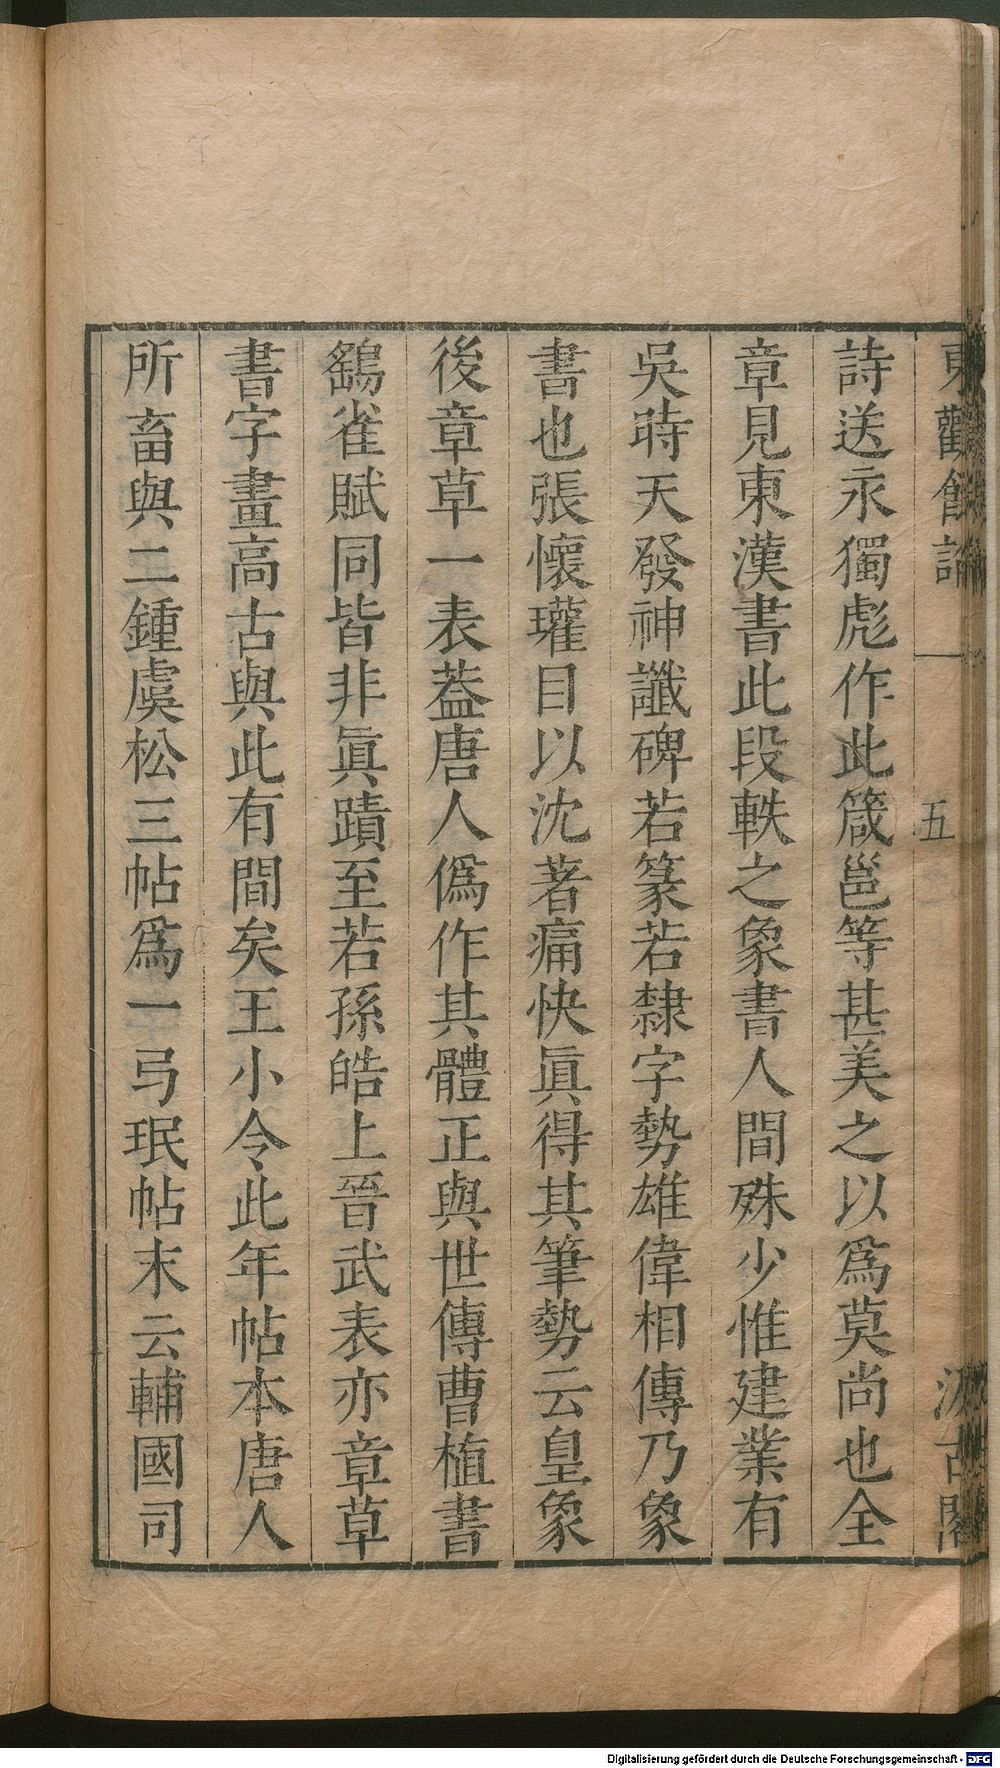 東觀餘論
五
汲古閣
詩送永獨彪作此箴邕等甚美之以爲莫尚也全
章見東漢書此段軼之象書人間殊少惟建業有
吳時天發神讖碑若篆若隸字勢雄偉相傳乃象
書也張懷瓘目以沈著痛快眞得其筆勢云皇象
後章草一表葢唐人僞作其體正與世傳曹植書
鷂雀賦同皆非眞蹟至若孫皓上晉武表亦章草
書字畫高古與此有間矣王小令此年帖本唐人
所畜與二鍾虞松三帖爲一弓珉帖末云輔國司
Digitalisierung gefördert durch die Deutsche Forschungsgemeinschaft - DFG